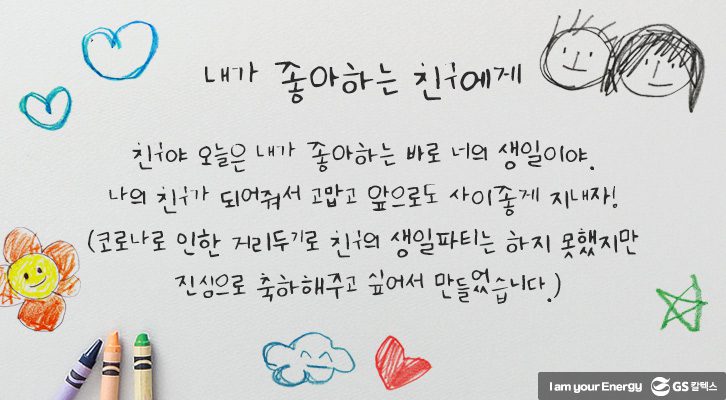 내가 좋아하는 친구에게
친구야 오늘은 내가 좋아하는 바로 너의 생일이야.
나의 친구가 되어줘서 고맙고 앞으로도 사이좋게 지내자!
(코로나로 인한 거리두기로 친구의 생일파티는 하지 못했지만
진심으로 축하해주고 싶어서 만들었습니다.)
I am your Energy GS 칼텍스